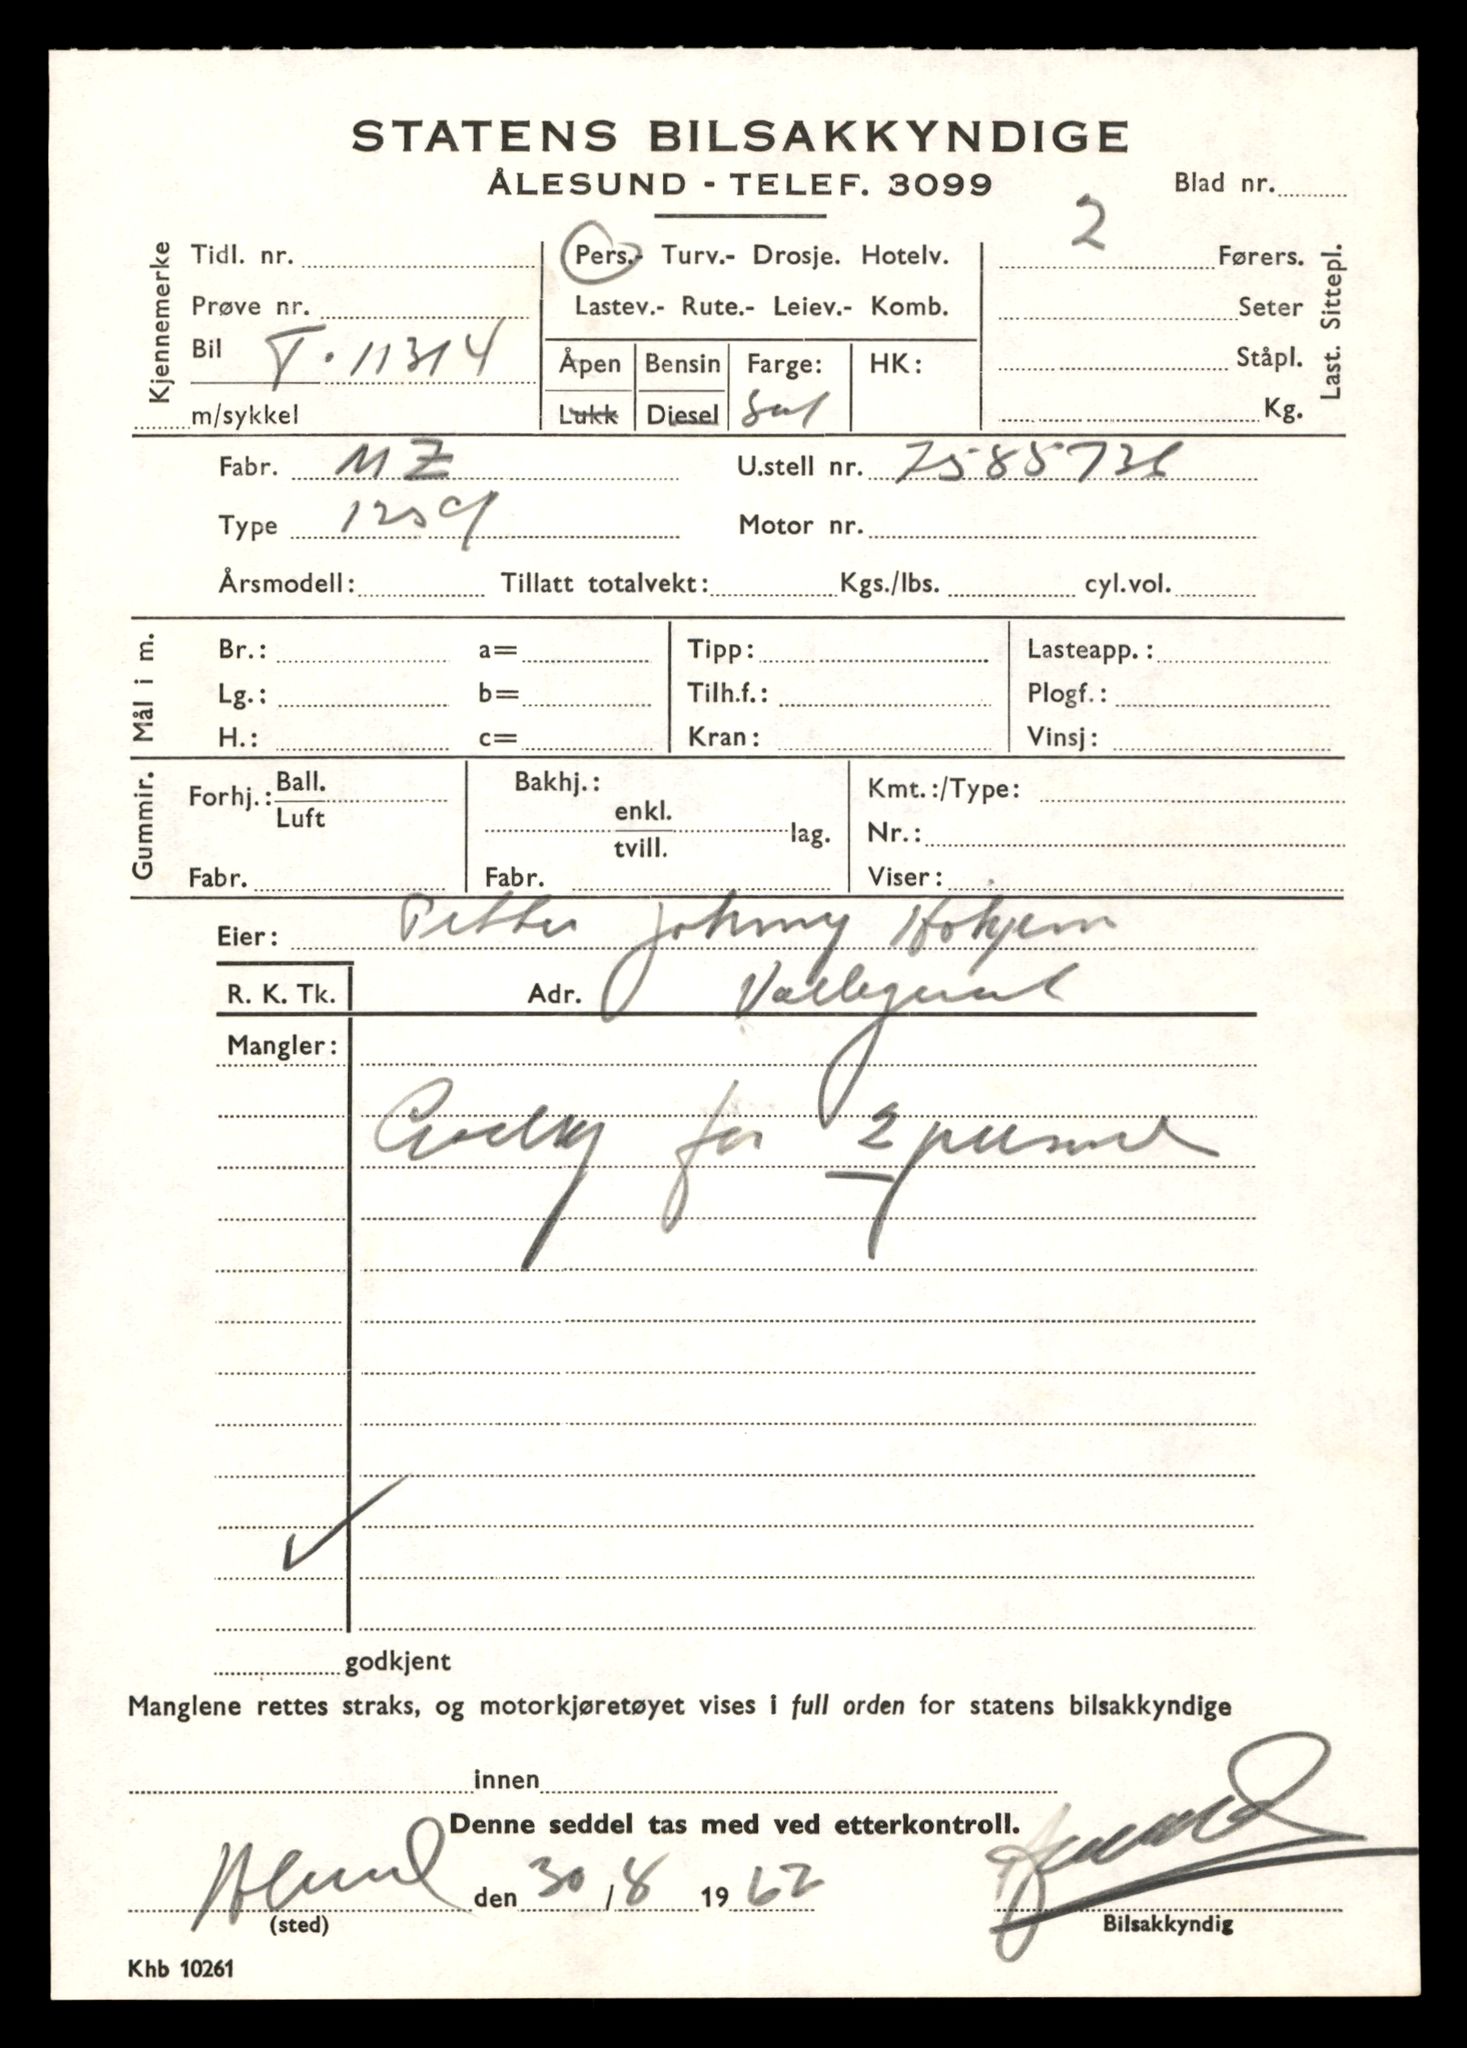 STATENS BILSAKKYNDIGE
ÅLESUND - TELEF. 3099
Blad nr.
Kjennemerke
Tidl. nr.
Prøve nr.
Bil T. 11314
m/sykkel
Pers.- Turv.- Drosje. Hotelv.
Lastev.- Rute.- Leiev.- Komb.
Åpen Bensin Farge: HK:
Lukk Diesel
2 Førers.
Seter
Ståpl.
Kg.
Last. Sittepl.
Fabr. MZ U.stell nr. 7585736
Type 125 Motor nr.
Årsmodell: Tillatt totalvekt: Kgs./lbs. cyl.vol.
Mål i m.
Br.: a= Tipp: Lasteapp.:
Lg.: b= Tilh.f.: Plogf.:
H.: c= Kran: Vinsj:
Gummir.
Forhj.: Ball. Luft
Fabr.
Bakhj.:
enkl. tvill. lag.
Fabr.
Kmt.:/Type:
Nr.:
Viser:
Eier: Petter Johnny
R. K. Tk. Adr.
Mangler:
Godkj for 2 personer
godkjent
Manglene rettes straks, og motorkjøretøyet vises i full orden for statens bilsakkyndige
innen
Denne seddel tas med ved etterkontroll.
Ålesund den 30/8 1962
(sted) Bilsakkyndig
Khb 10261